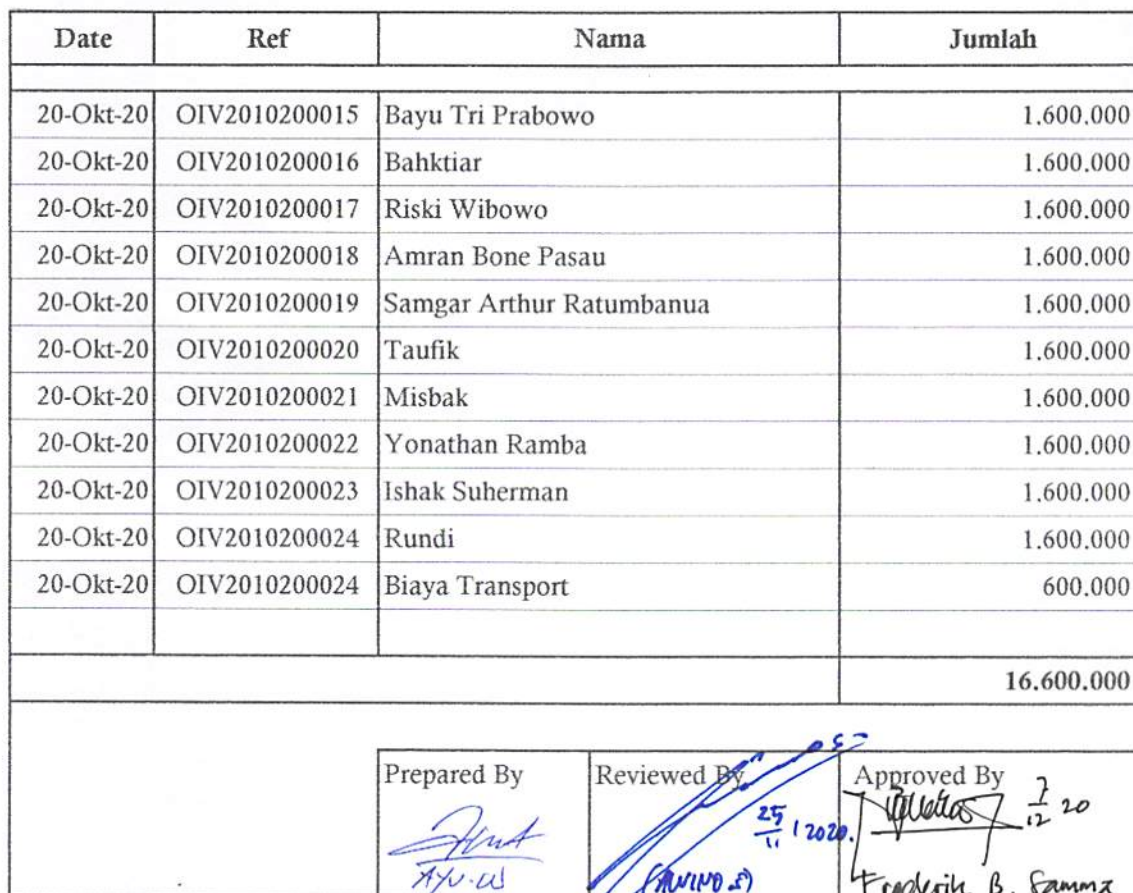 Date Ref Nama Jumlah
20-Okt-20 OIV2010200015 Bayu Tri Prabowo 1.600.000
20-Okt-20 OIV2010200016 Bahktiar 1.600.000
20-Okt-20 OIV2010200017 Riski Wibowo 1.600.000
20-Okt-20 OIV2010200018 Amran Bone Pasau 1.600.000
20-Okt-20 OIV2010200019 Samgar Arthur Ratumbanua 1.600.000
20-Okt-20 OIV2010200020 Taufik 1.600.000
20-Okt-20 OIV2010200021 Misbak 1.600.000
20-Okt-20 OIV2010200022 Yonathan Ramba 1.600.000
20-Okt-20 OIV2010200023 Ishak Suherman 1.600.000
20-Okt-20 OIV2010200024 Rundi 1.600.000
20-Okt-20 OIV2010200024 Biaya Transport 600.000
16.600.000
Prepared By Reviewed By Approved By
25/11 2020. 7/12 20
Frederik. B. Samma